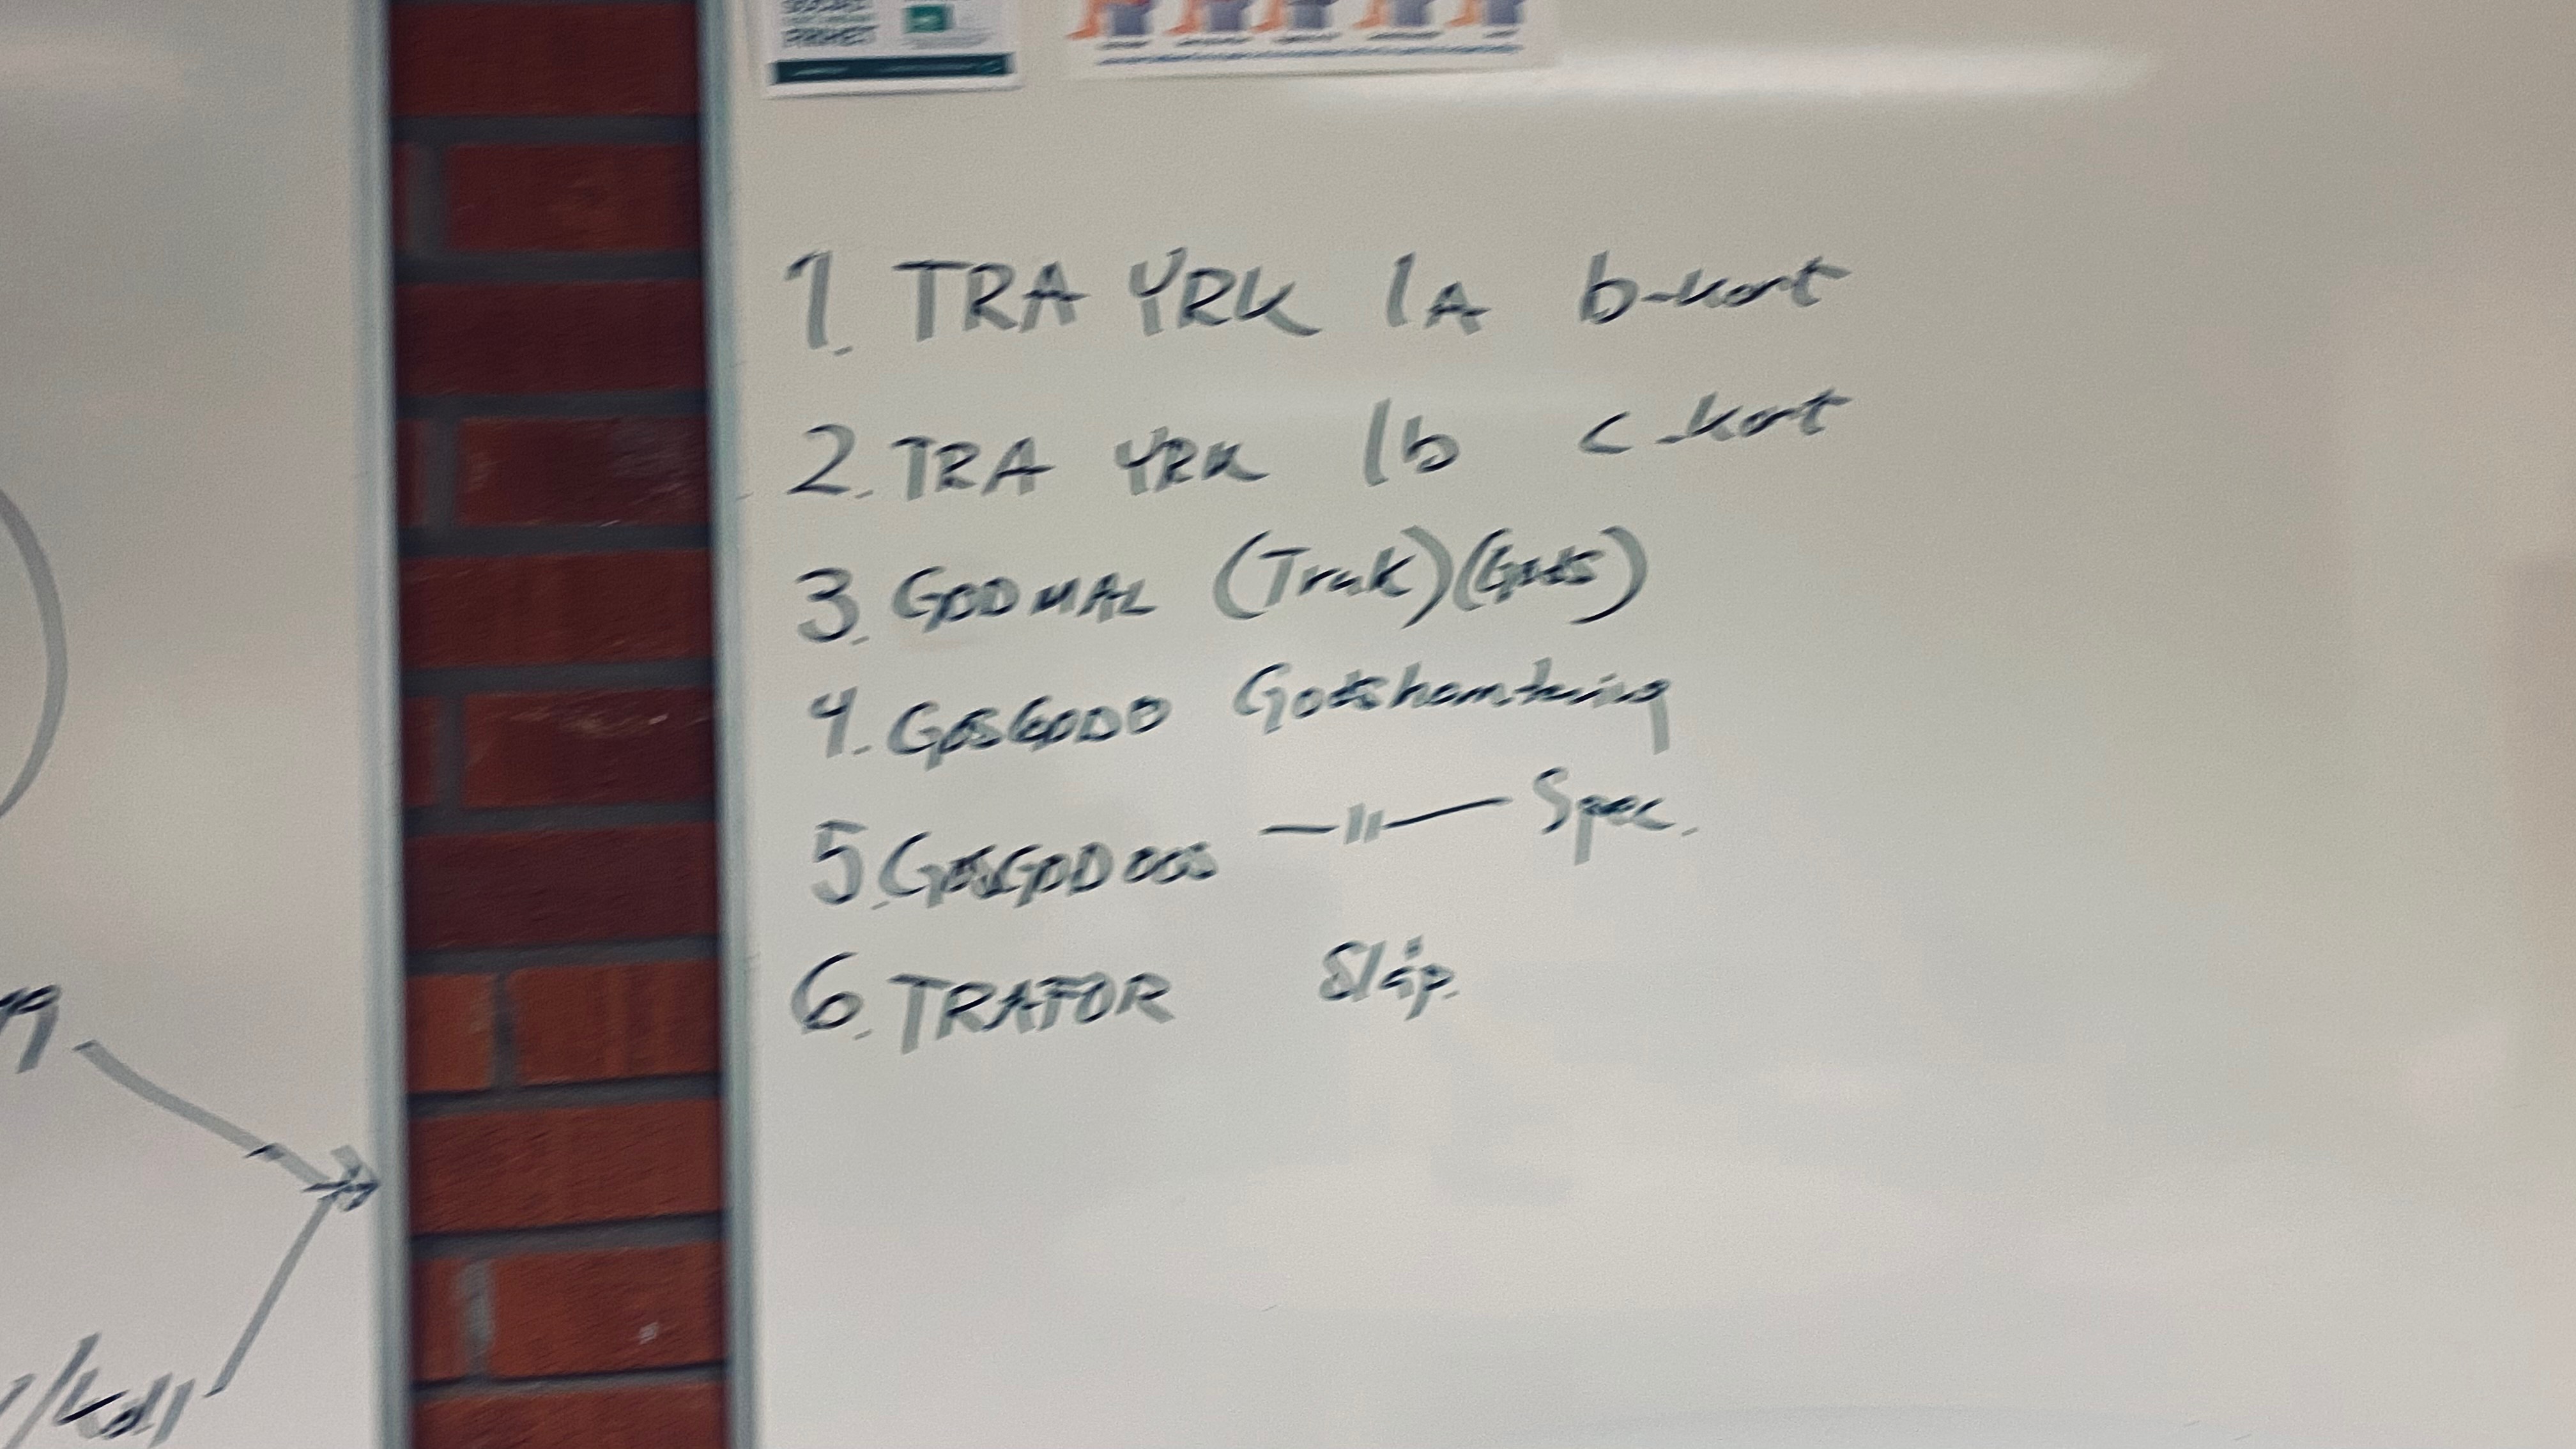 1. TRA YRK 1A b-kort
2. TRA YRK 1b c-kort
3. GODMAL (Truk)(Gods)
4. GOSGODO Godshantering
5. GOSGODOOS —11— Spec.
6. TRAFOR Släp.